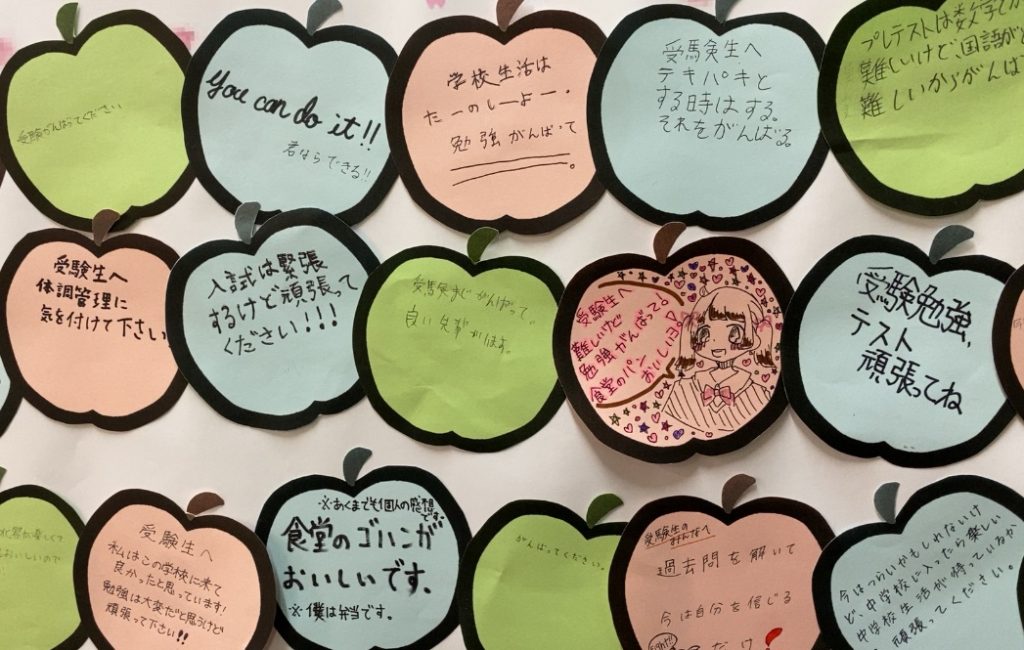 受験がんばってください
you can do it!!
君ならできる!!
学校生活は
たーのしーよー.
勉強がんばって。
受験生へ
テキパキと
する時はする。
それをがんばる。
プレテストは数学
難しいけど、国語が
難しいからがんば
受験生へ
体調管理に
気を付けて下さい
入試は緊張
するけど頑張って
ください!!!
受験まじがんばって
良い
受験生へ
難しいけど
勉強がんばって!
食堂のパン
おいしいヨ。
受験勉強,
テスト
頑張ってね
おいしいので
受験生へ
私はこの学校に来て
良かったと思っています!
勉強は大変だと思うけど
頑張って下さい!!
※あくまでも個人の感想
です。
食堂のゴハンが
おいしいです、
※僕は弁当です。
がんばってください。
受験生の
みんなへ
過去問を解いて
今は自分を信じる
だけ!
今はつらいかもしれないけ
ど、中学校に入ったら楽しい
中学校生活が待っているか
頑張ってください。